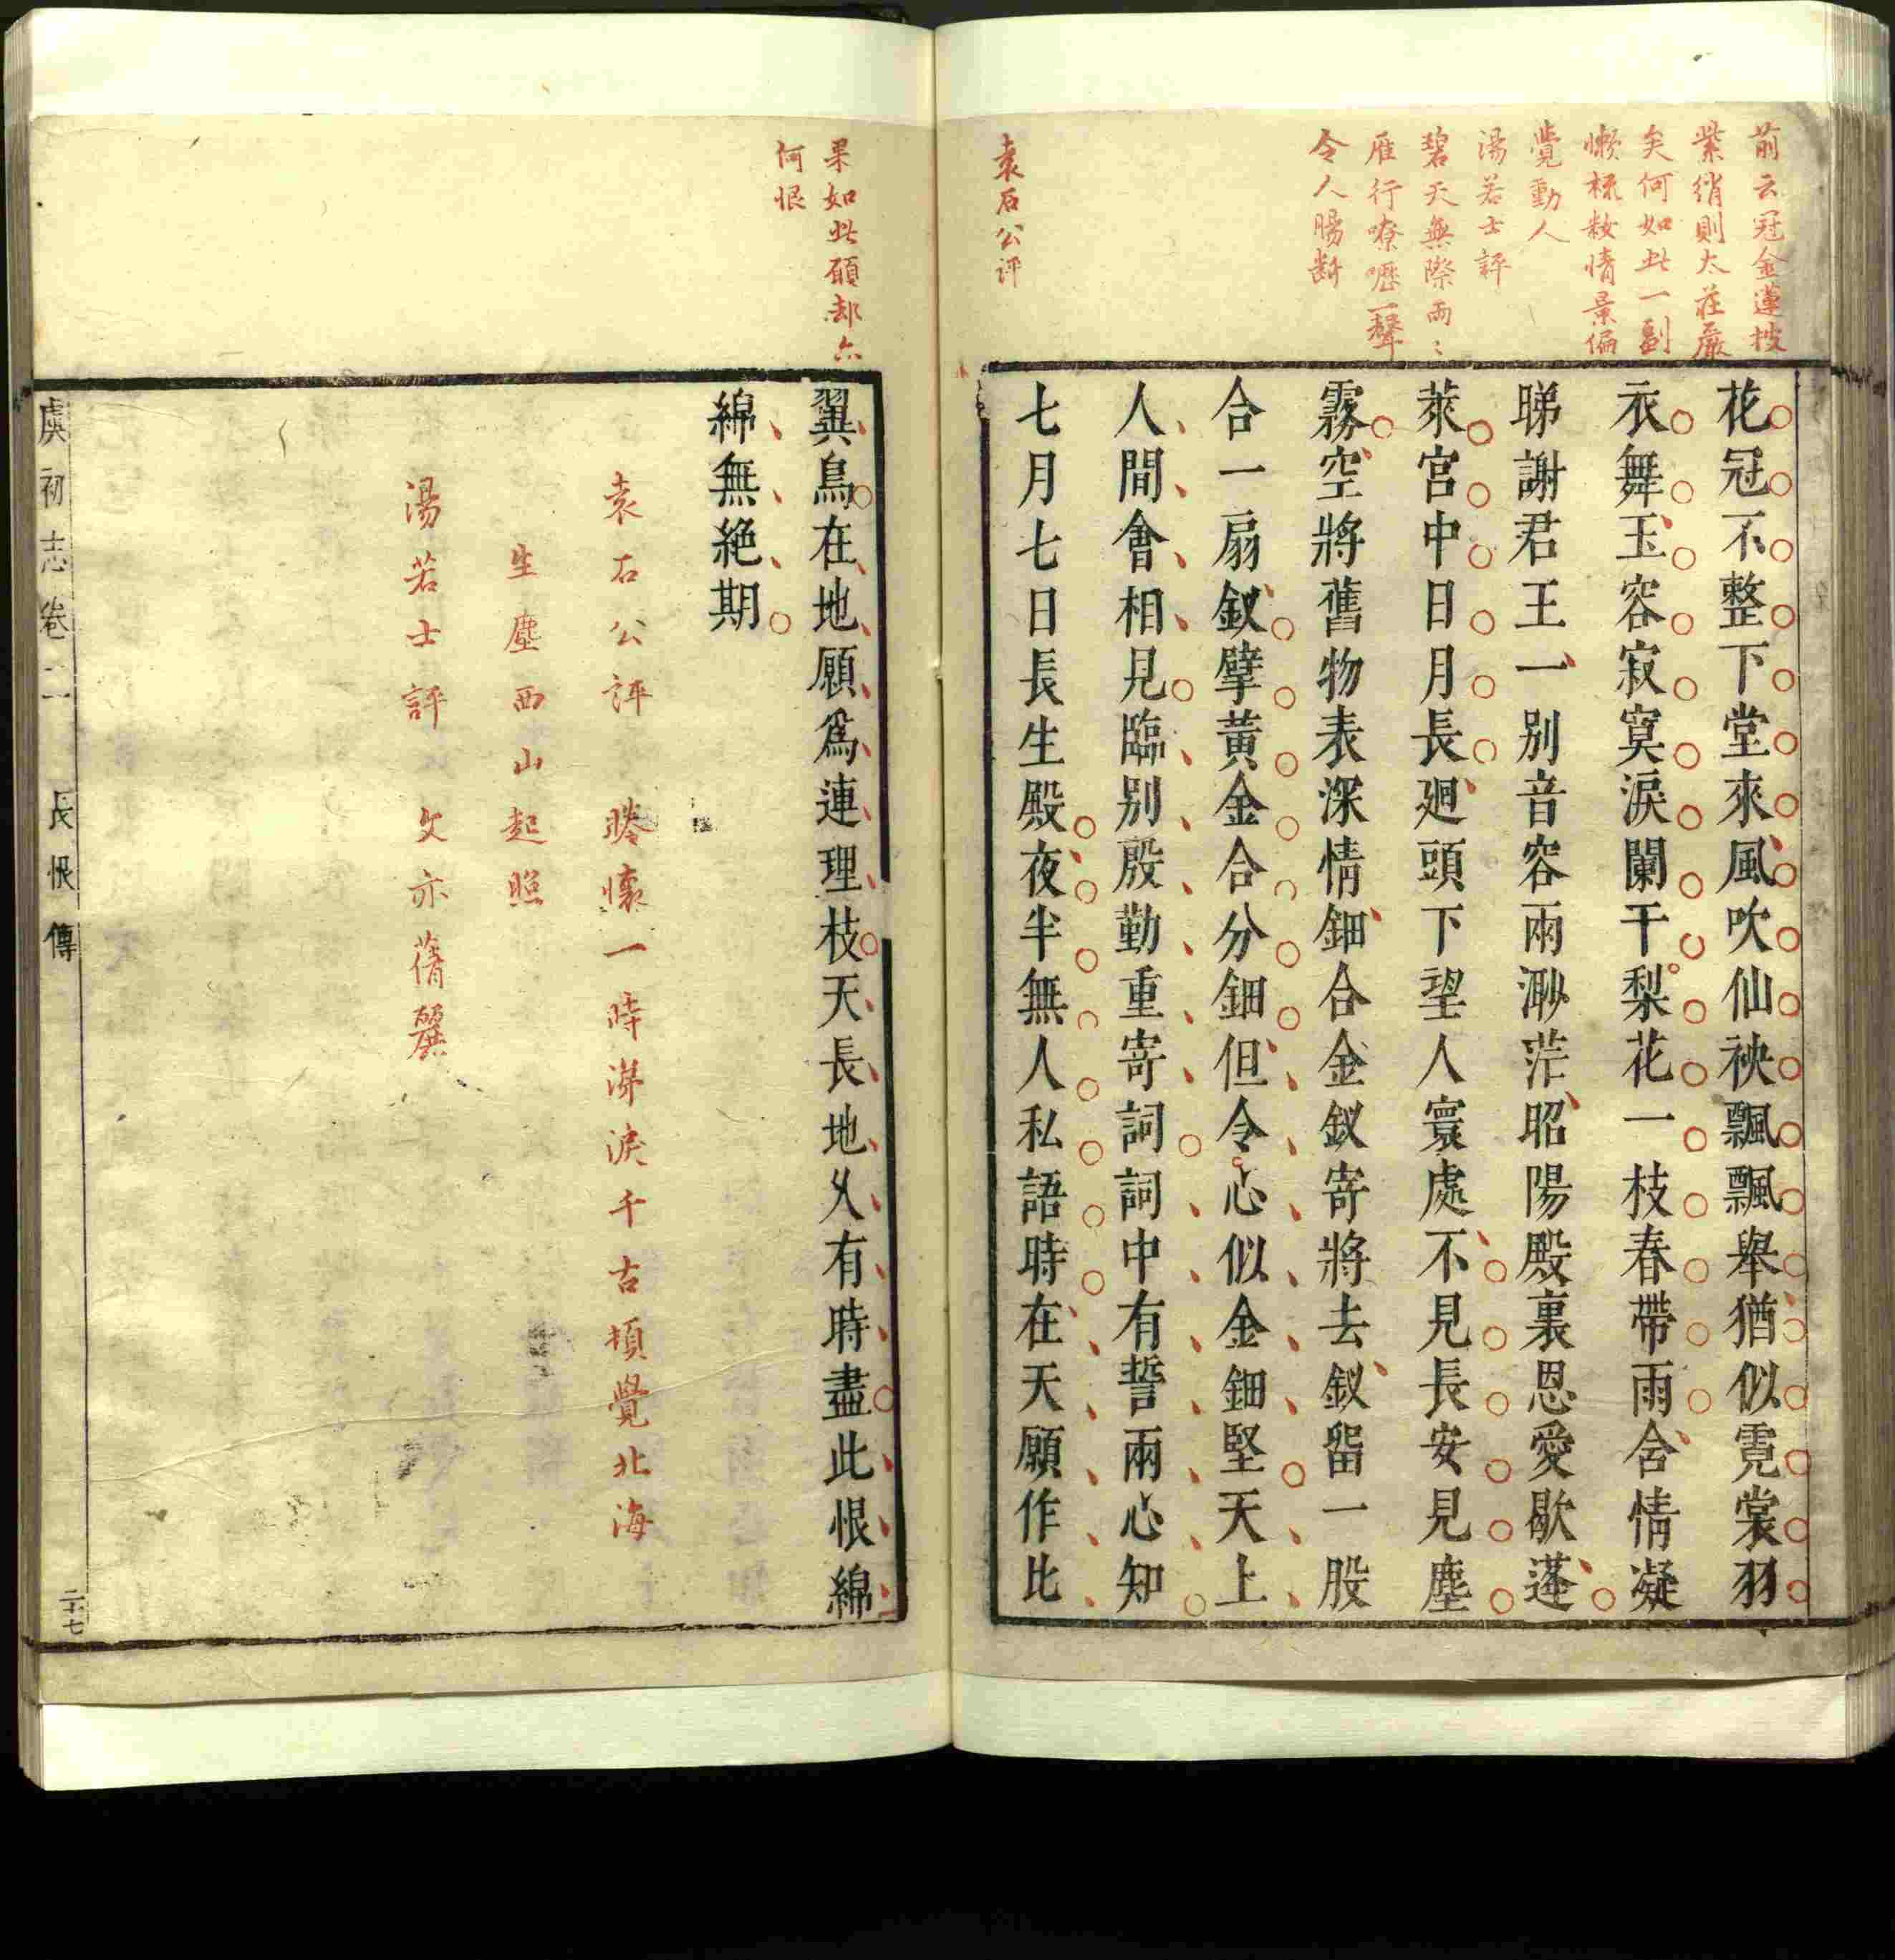 前云冠金蓮披
紫綃則太莊嚴
矣何如此一副
懶梳粧情景偏
覺動人
湯若士評
碧天無際兩〻
雁行嘹嚦一聲
令人腸斷
袁石公評
花冠不整下堂來風吹仙袂飄飄舉猶似霓裳羽
衣舞玉容寂寞淚闌干梨花一枝春帶雨含情凝
睇謝君王一別音容兩渺茫昭陽殿裏恩愛歇蓬
萊宮中日月長廻頭下望人寰處不見長安見塵
霧空將舊物表深情鈿合金釵寄將去釵留一股
合一扇釵擘黃金合分鈿但令心似金鈿堅天上
人間會相見臨別殷勤重寄詞詞中有誓兩心知
七月七日長生殿夜半無人私語時在天願作比
果如此願却亦
何恨
翼鳥在地願爲連理枝天長地久有時盡此恨綿
綿無絶期
袁石公評 眵懷一時涕淚千古頓覺北海
生塵西山起照
湯若士評 文亦蒨麗
虞初志卷二 長恨傳 二十七